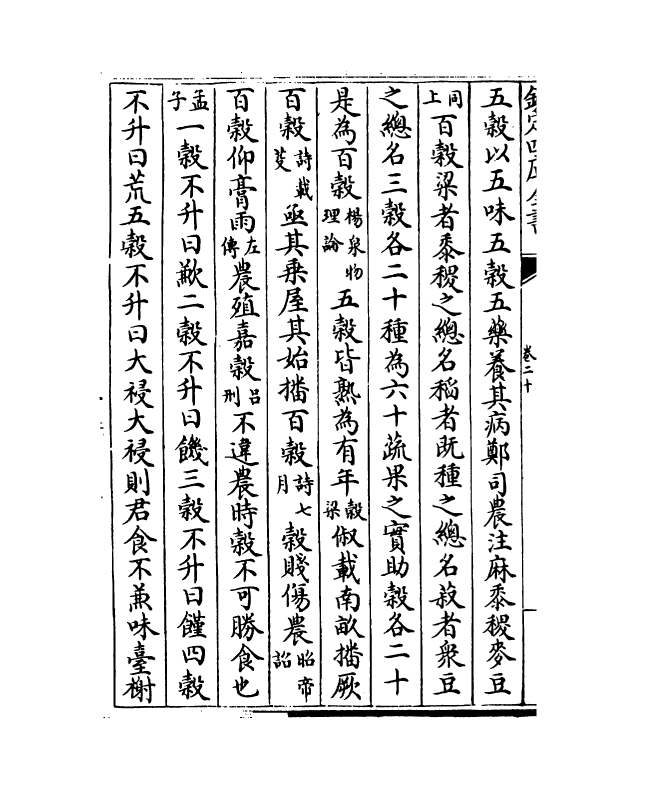 欽定四庫全書
卷二十
五穀以五味五穀五藥養其病鄭司農注麻黍稷麥豆
同上百穀粱者黍稷之總名稻者既種之總名菽者衆豆
之總名三穀各二十種為六十蔬果之實助穀各二十
是為百穀楊泉物理論五穀皆熟為有年穀梁俶載南畝播厥
百穀詩載芟亟其乗屋其始播百穀詩七月穀賤傷農昭帝詔
百穀仰膏雨左傳農殖嘉穀吕刑不違農時穀不可勝食也
孟子一穀不升曰歉二穀不升曰饑三穀不升曰饉四穀
不升曰荒五穀不升曰大祲大祲則君食不兼味臺榭